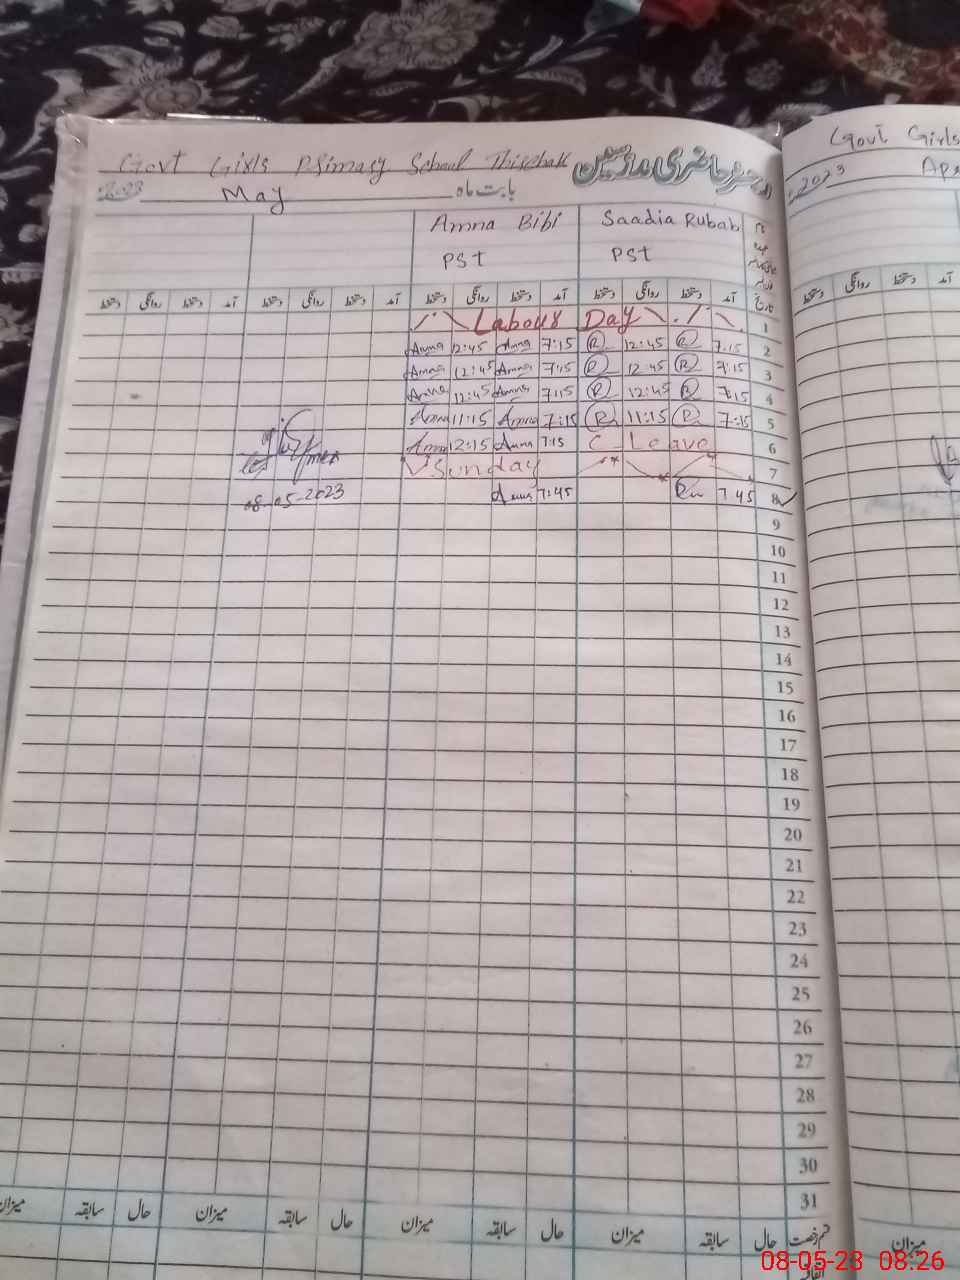 Govt Girls Primary School رجسٹر حاضری ملازمین
2023 May بابت ماہ
Amna Bibi Saadia Rubab
PST PST
دستخط روانگی دستخط آمد دستخط روانگی دستخط آمد دستخط روانگی دستخط آمد دستخط روانگی دستخط آمد تاریخ
Labour Day 1
Amna 12:45 Amna 7:15 R 12:45 R 7:15 2
Amna 12:45 Amna 7:15 R 12:45 R 7:15 3
Amna 12:45 Amna 7:15 R 12:45 R 7:15 4
Amna 11:15 Amna 7:15 R 11:15 R 7:15 5
Amna 12:15 Amna 7:15 C-Leave 6
Sunday 7
08-05-2023 Amna 7:45 7:45 8
9
10
11
12
13
14
15
16
17
18
19
20
21
22
23
24
25
26
27
28
29
30
31
میزان سابقہ حال میزان سابقہ حال میزان سابقہ حال میزان سابقہ حال قسم رخصت
Govt Girls
2023
دستخط روانگی دستخط آمد
میزان
08-05-23 08:26